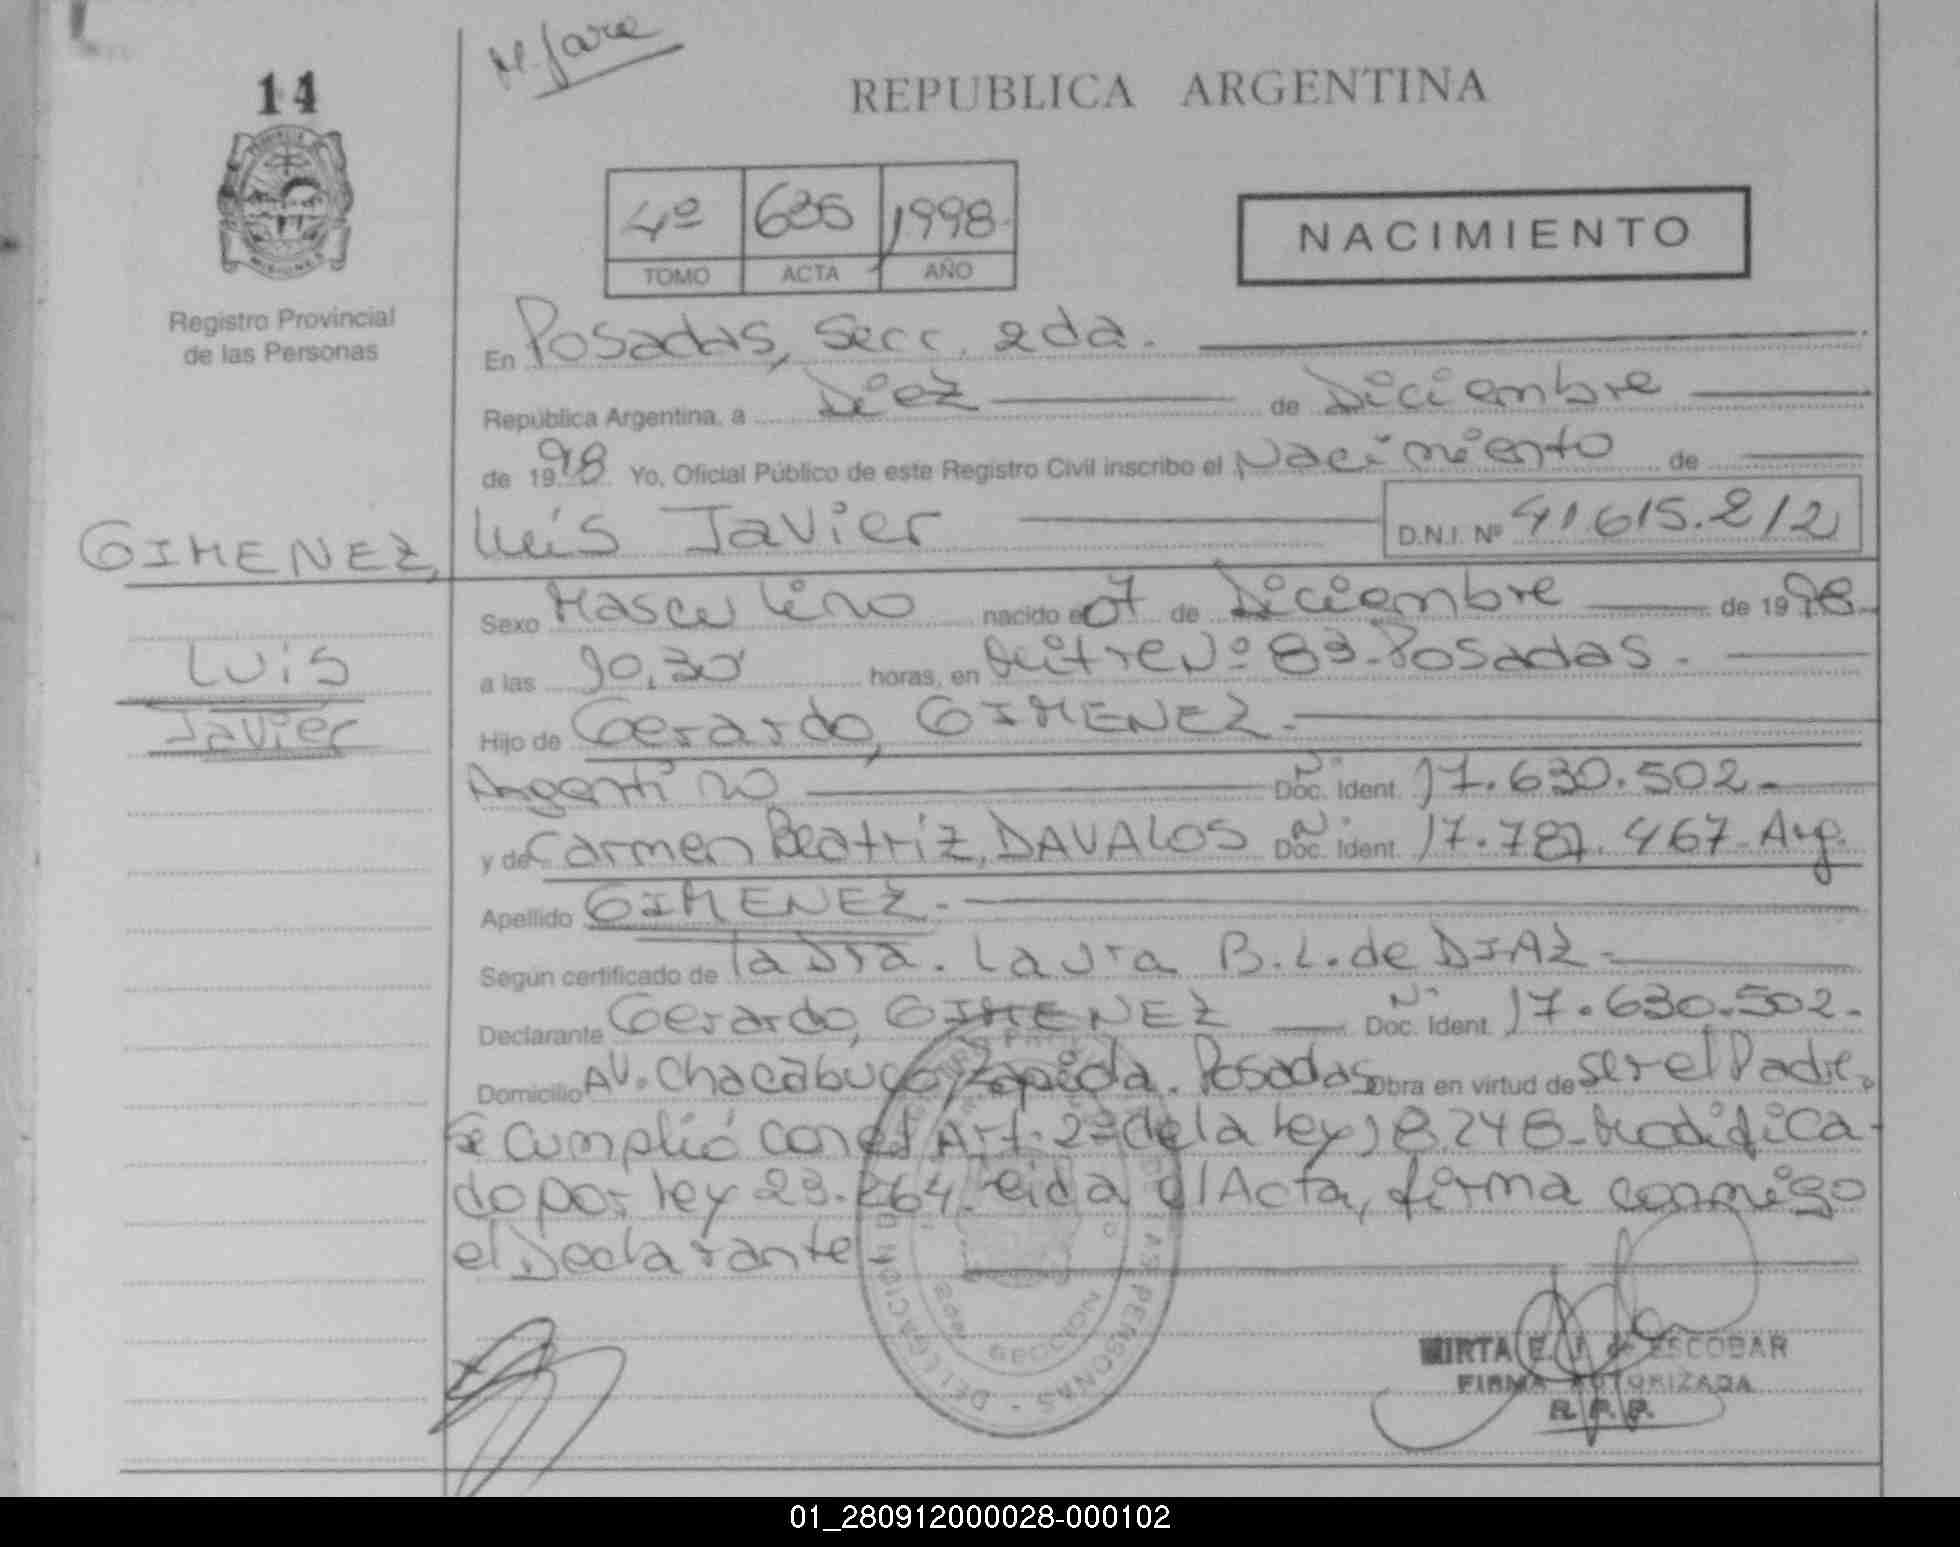 14
REPUBLICA ARGENTINA
4º 635 1998
TOMO ACTA AÑO
NACIMIENTO
Registro Provincial
de las Personas
En Posadas, Secc. 2da.
República Argentina, a Diez de Diciembre
de 1998 Yo, Oficial Público de este Registro Civil inscribo el Nacimiento de
GIMENEZ, Luis Javier D.N.I. Nº 41.615.212
Sexo Masculino nacido el 07 de Diciembre de 1998
Luis
a las 10,30 horas, en Mitre Nº 83 - Posadas.
Javier
Hijo de Gerardo, GIMENEZ.
Argentino Doc. Ident. 17.630.502.-
y de Carmen Beatriz, DAVALOS Doc. Ident. 17.787.467 - Arg.
Apellido GIMENEZ.-
Según certificado de la Dra. Laura B. L. de DIAZ.-
Declarante Gerardo, GIMENEZ Doc. Ident. 17.630.502.-
Domicilio Av. Chacabuco y Zapiola. Posadas Obra en virtud de ser el Padre.
Se cumplió con el Art. 2º de la ley 18.248 - Modifica-
do por ley 23.264. leida el Acta, firma conmigo
el Declarante.-
MIRTA E. de ESCOBAR
FIRMA AUTORIZADA
R. P. P.
01_280912000028-000102